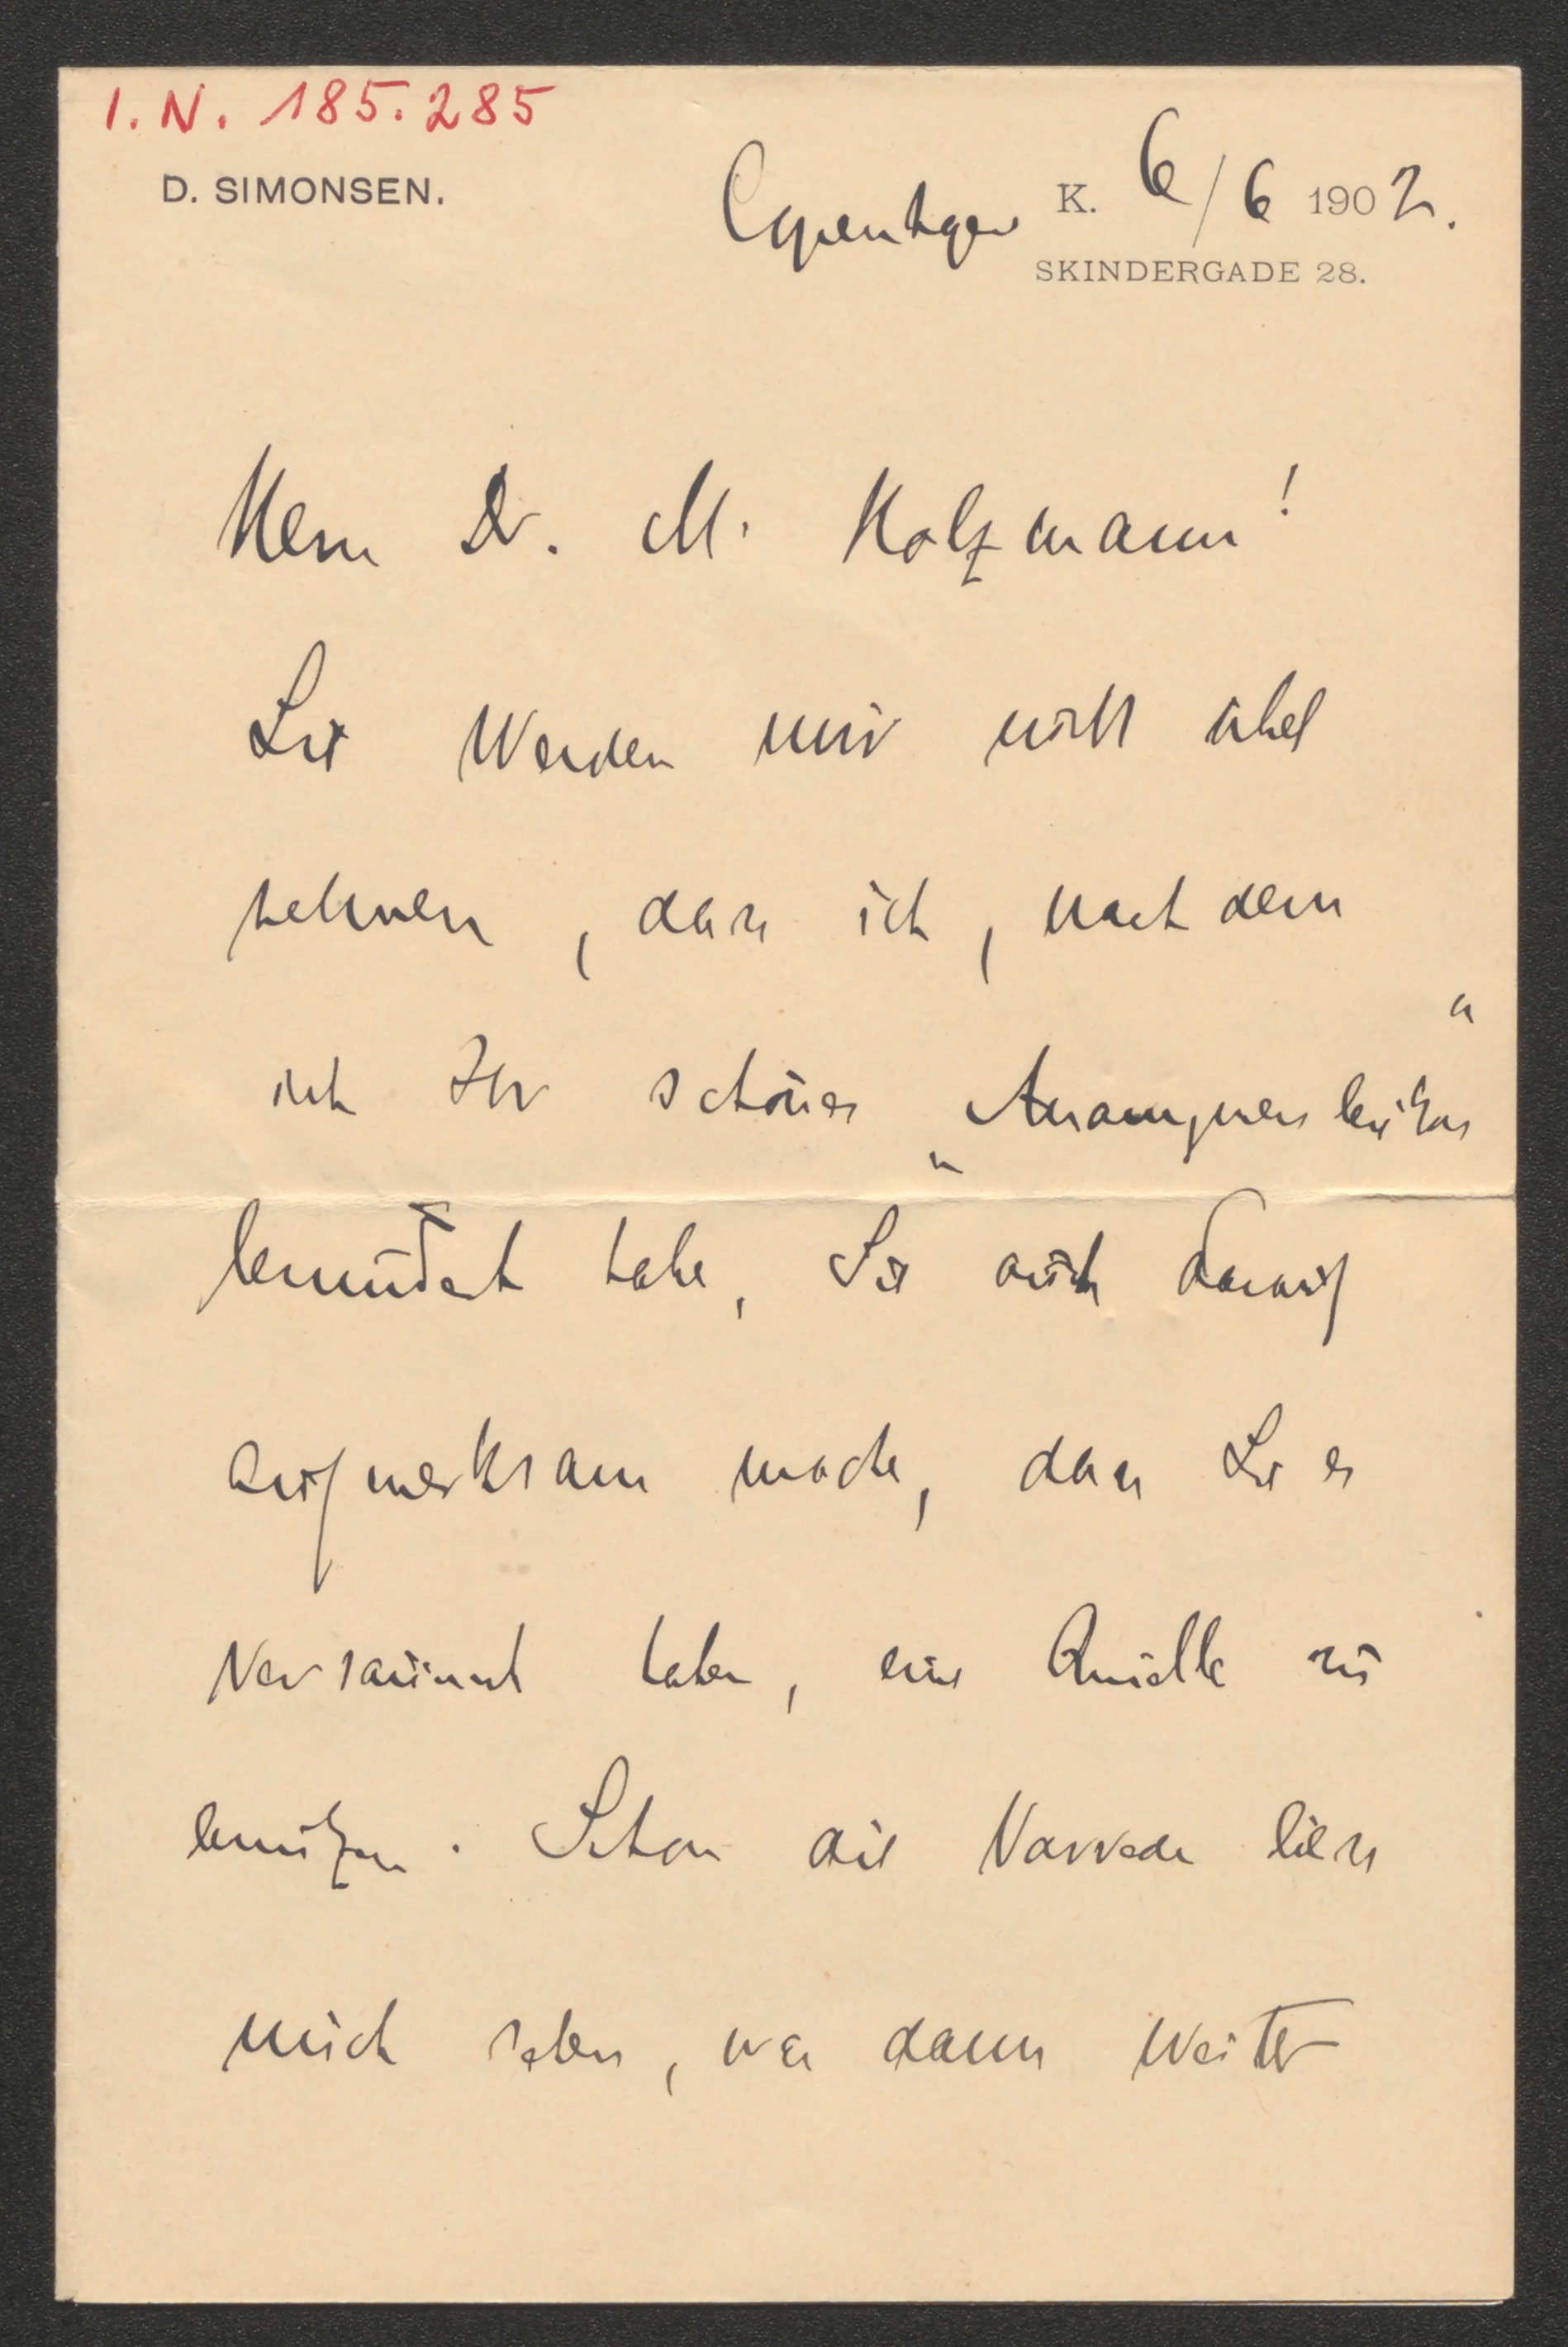 I. N. 185.285
D. SIMONSEN.
Copenhagen K. 6/6 1902.
SKINDERGADE 28.
Herrn Dr. M. Holzmann!
Sie werden mir nicht übel
nehmen, dass ich, nachdem
ich Ihr schönes „Anonymenlexikon“
bewundert habe, Sie auch darauf
aufmerksam mache, dass Sie es
versäumt haben, eine Quelle zu
benützen. Schon die Vorrede liess
mich sehen, was dann weiter